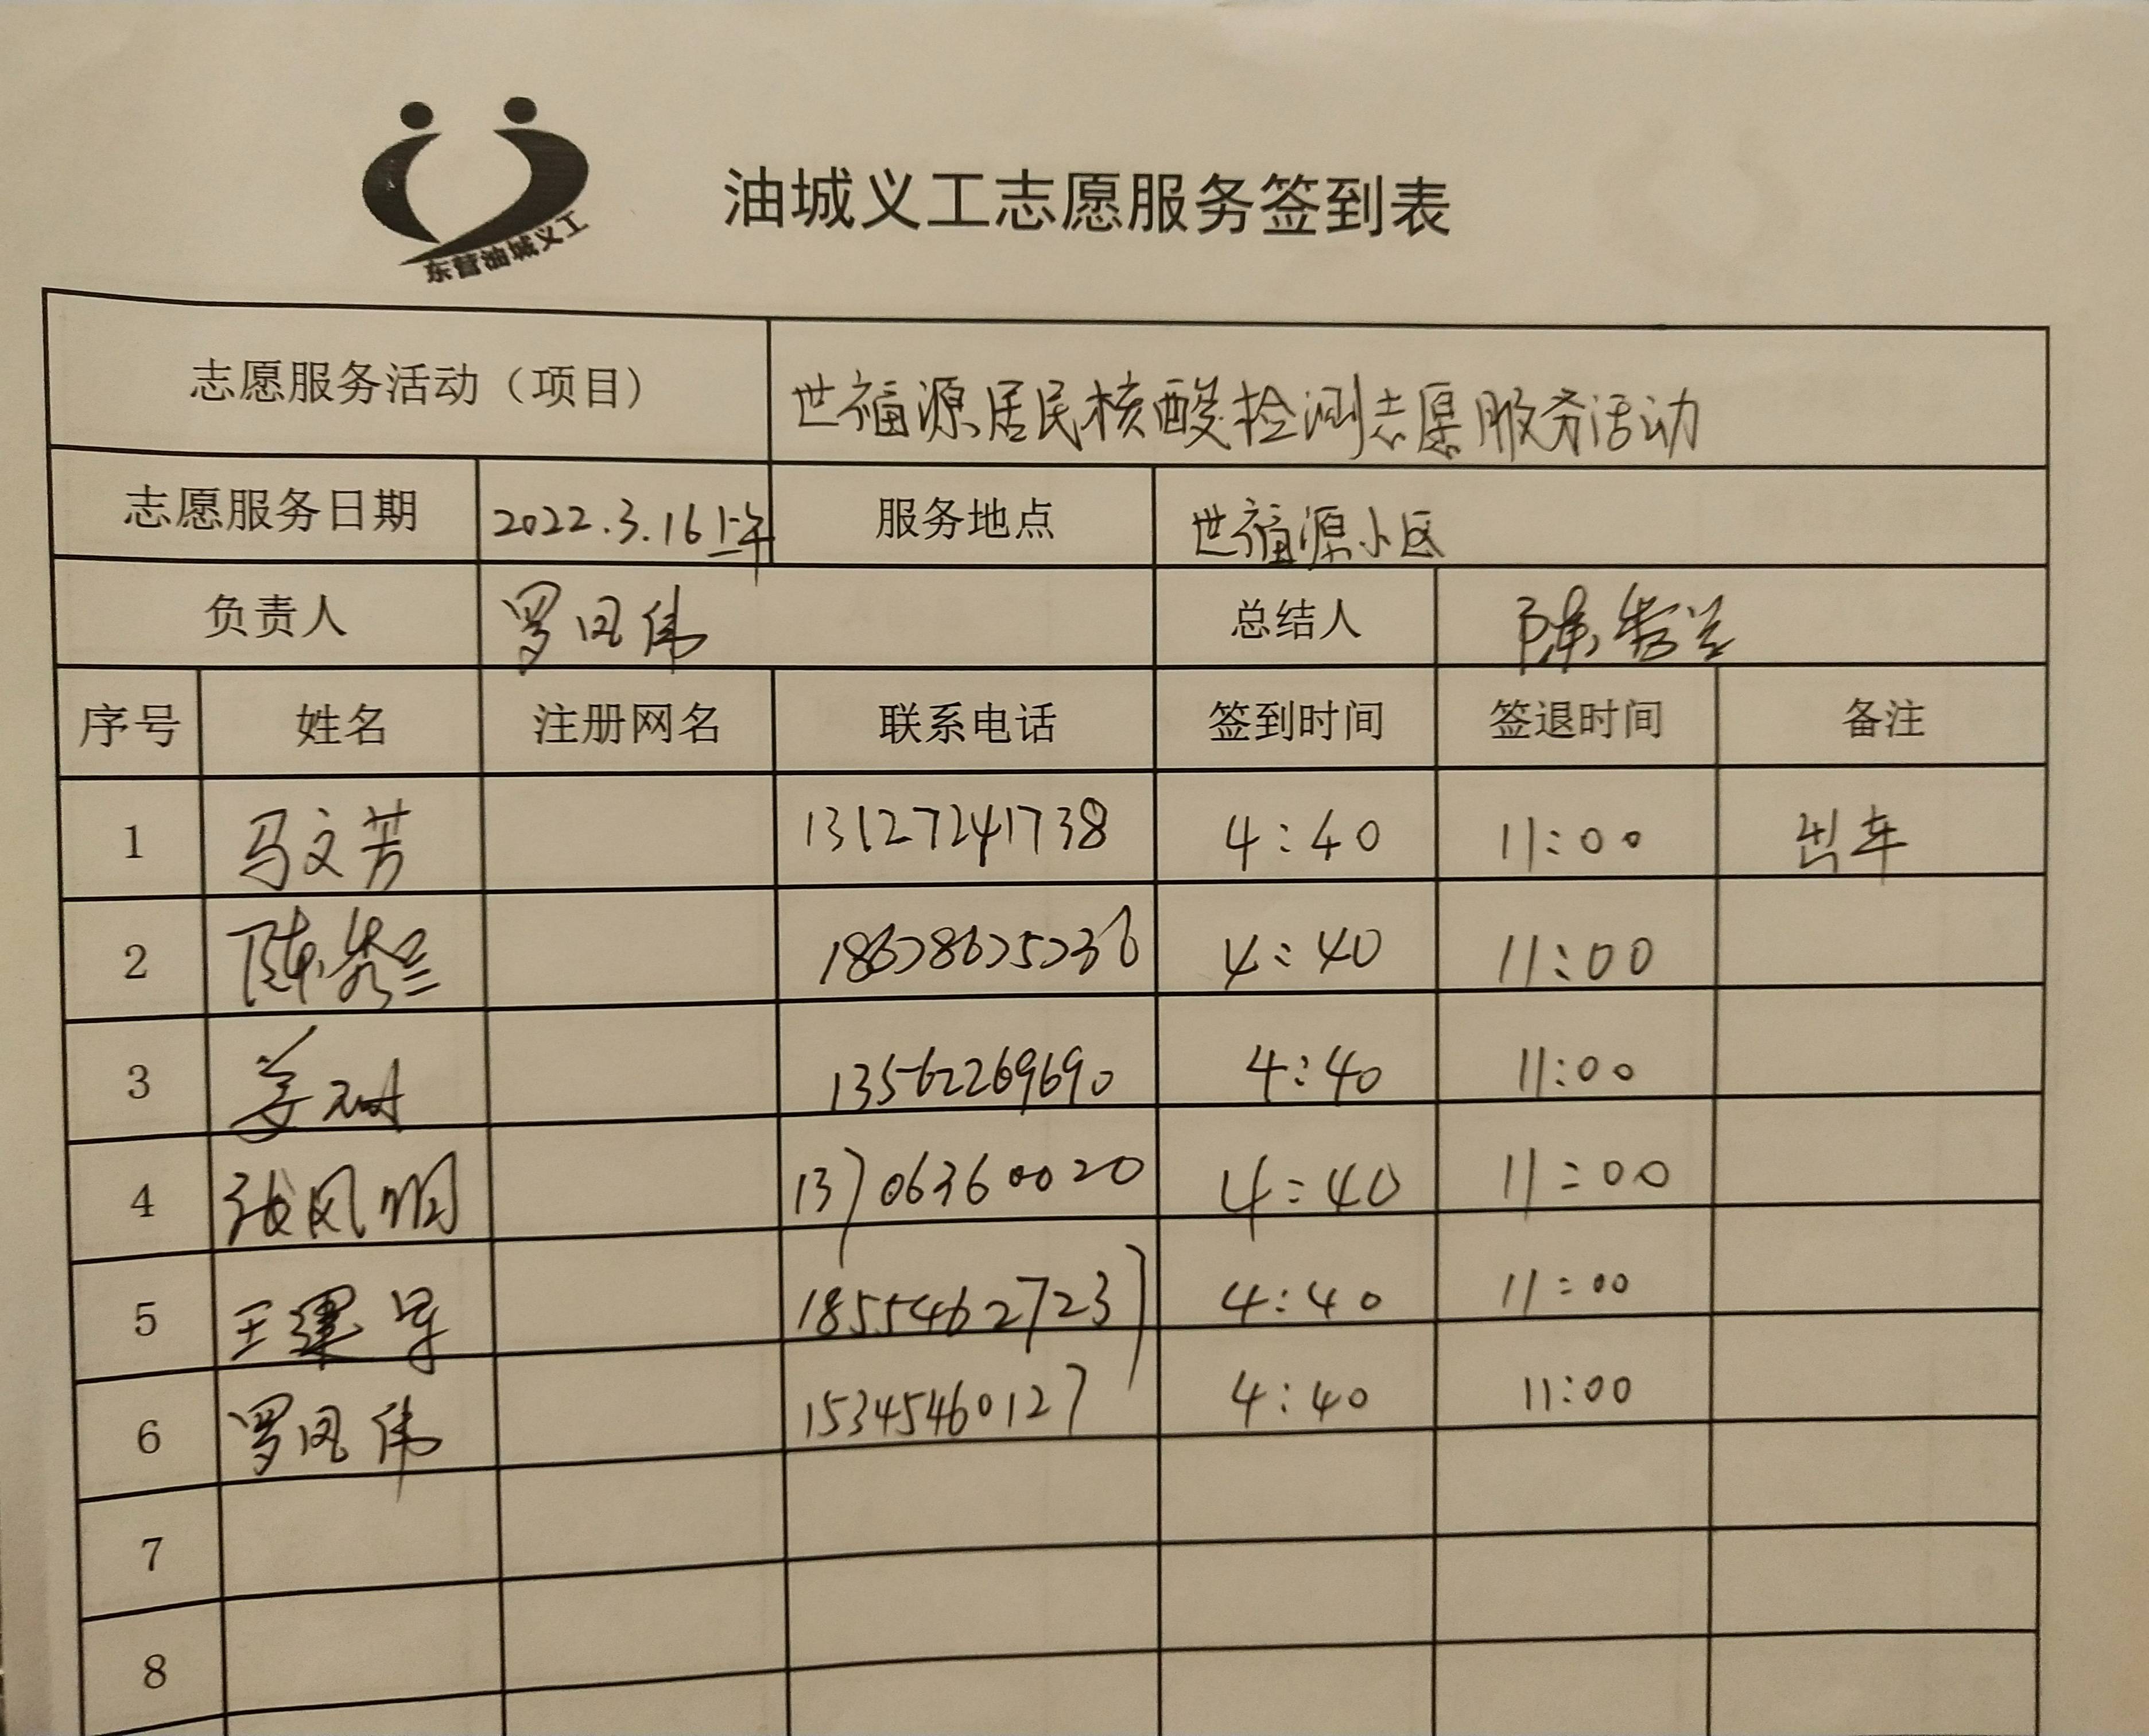 东营油城义工
油城义工志愿服务签到表
志愿服务活动（项目） 世福源居民核酸检测志愿服务活动
志愿服务日期 2022.3.16上午 服务地点 世福源小区
负责人 罗凤伟 总结人 陈秀兰
序号 姓名 注册网名 联系电话 签到时间 签退时间 备注
1 马文芳 13127241738 4:40 11:00 出车
2 陈秀兰 18678675236 4:40 11:00
3 姜 13562269690 4:40 11:00
4 张凤明 13706360020 4:40 11:00
5 王建军 18554627237 4:40 11:00
6 罗凤伟 15345460127 4:40 11:00
7
8